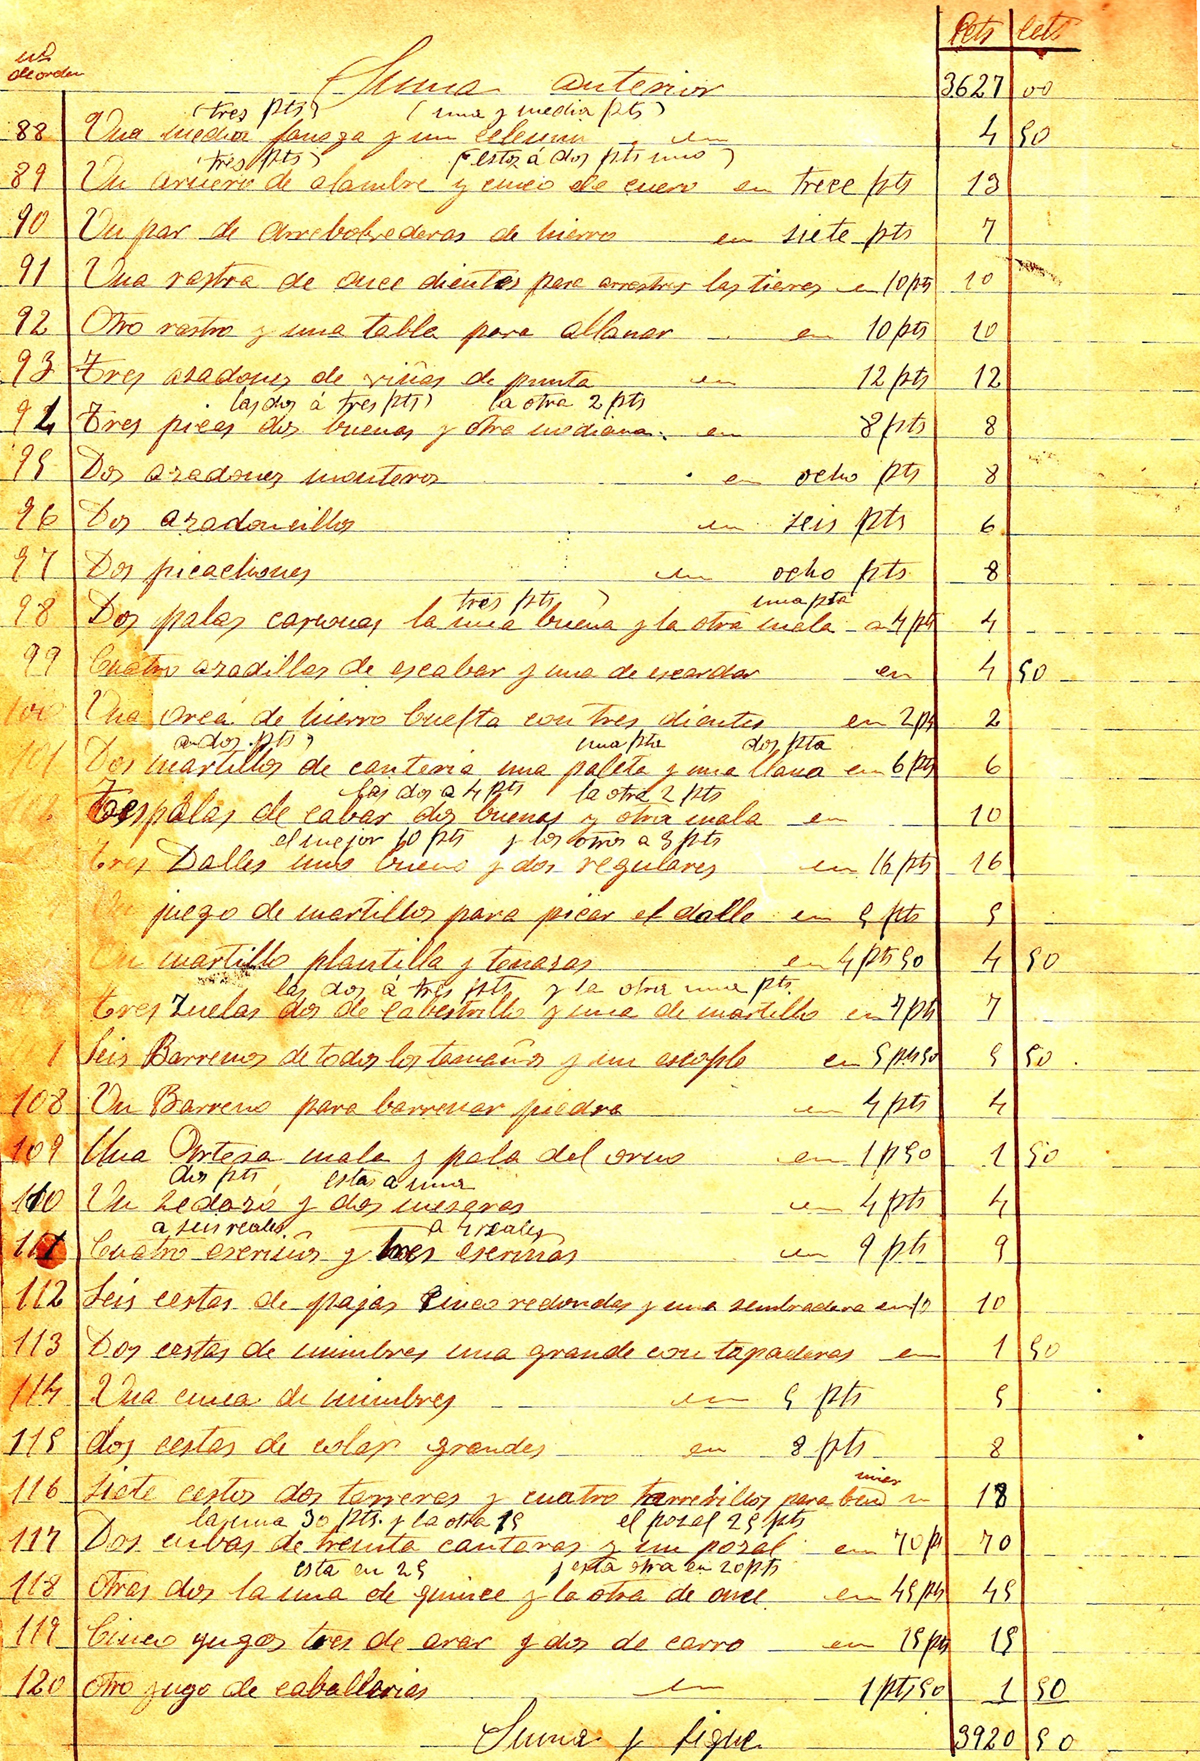 nº de orden
Pets cets
Suma anterior 3627 00
(tres pts) (una y media pts)
88 Una media fanega y un celemin en 4 50
tres pts) (estos á dos pts uno)
89 Un arnero de alambre y cinco de cuero en trece pts 13
90 Un par de de hierro en siete pts 7
91 Una rastra de once dientes para arrastrar las tieras en 10 pts 10
92 Otro rastro y una tabla para allanar en 10 pts 10
93 Tres azadones de viñas de punta en 12 pts 12
las dos á tres pts) la otra 2 pts
94 Tres picas dos buenas y otra mediana. en 8 pts 8
95 Dos azadones monteros en ocho pts 8
96 Dos azadoncillos en seis pts 6
97 Dos picachones en ocho pts 8
tres pts) una pta
98 Dos palas carvonas la una buena y la otra mala a 4 pts 4
99 Cuatro azadillas de escabar y una de escardar en 4 50
100 Una orca de hierro buelta con tres dientes en 2 pts 2
a dos pts) una pta dos pta
101 Dos martillos de canteria una paleta y una llana en 6 pts 6
las dos a 4 pts la otra 2 pts
Tres palas de cabar dos buenas y otra mala en 10
el mejor 10 pts y los otros a 3 pts
Tres Dalles uno bueno y dos regulares en 16 pts 16
Un juego de martillos para picar el dalle en 5 pts 5
Un martillo plantilla y tenazas en 4 pts 50 4 50
las dos a tres pts y la otra una pts.
Tres Zuelas dos de cabestrillo y una de martillo en 7 pts 7
Seis Barrenos de todos los tamaños y un escoplo en 5 pts 50 5 50
108 Un Barreno para barrenar piedra en 4 pts 4
109 Una Ortesa mala y pala del orno en 1 p 50 1 50
dos pts, estas a una
110 Un sedazo y dos en 4 pts 4
a seis reales a 4 reales
111 Cuatro escriños y tres escriñas en 9 pts 9
112 Seis cestas de pajas cinco redondas y una sembradera en 10 10
113 Dos cestas de mimbres una grande con tapaderas en 1 50
114 Una cuna de mimbres en 5 pts 5
115 dos cestas de colar grandes en 8 pts 8
116 Siete cestos dos terreros y cuatro terrerillos para 18
la una 30 pts. y la otra 15 el pozal 25 pts
117 Dos cubas de treinta cantaras y un pozal en 70 pts 70
esta en 25 y esta otra en 20 pts
118 otras dos la una de quince y la otra de once. en 45 pts 45
119 Cinco yugos tres de arar y dos de carro en 15 pts 15
120 otro yugo de caballerias en 1 pts 50 1 50
Suma y sigue 3920 50